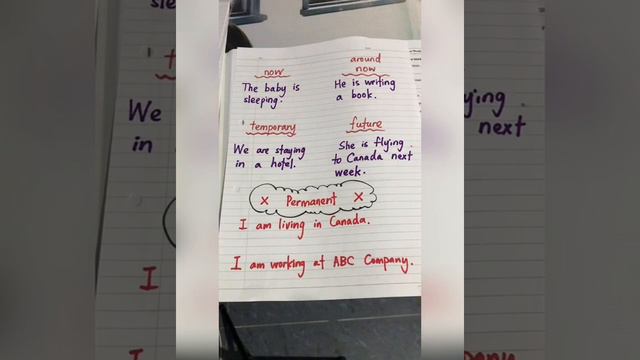 now
The baby is
sleeping.
around
now
He is writing
a book.
temporary
We are staying
in a hotel.
future
She is flying
to Canada next
week.
x Permanent x
I am living in Canada.
I am working at ABC Company.